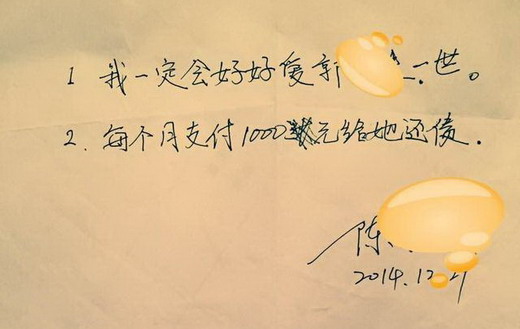 1 我一定会好好爱郭 一世。
2. 每个月支付1000元给她还债.
陈
2014.12.21